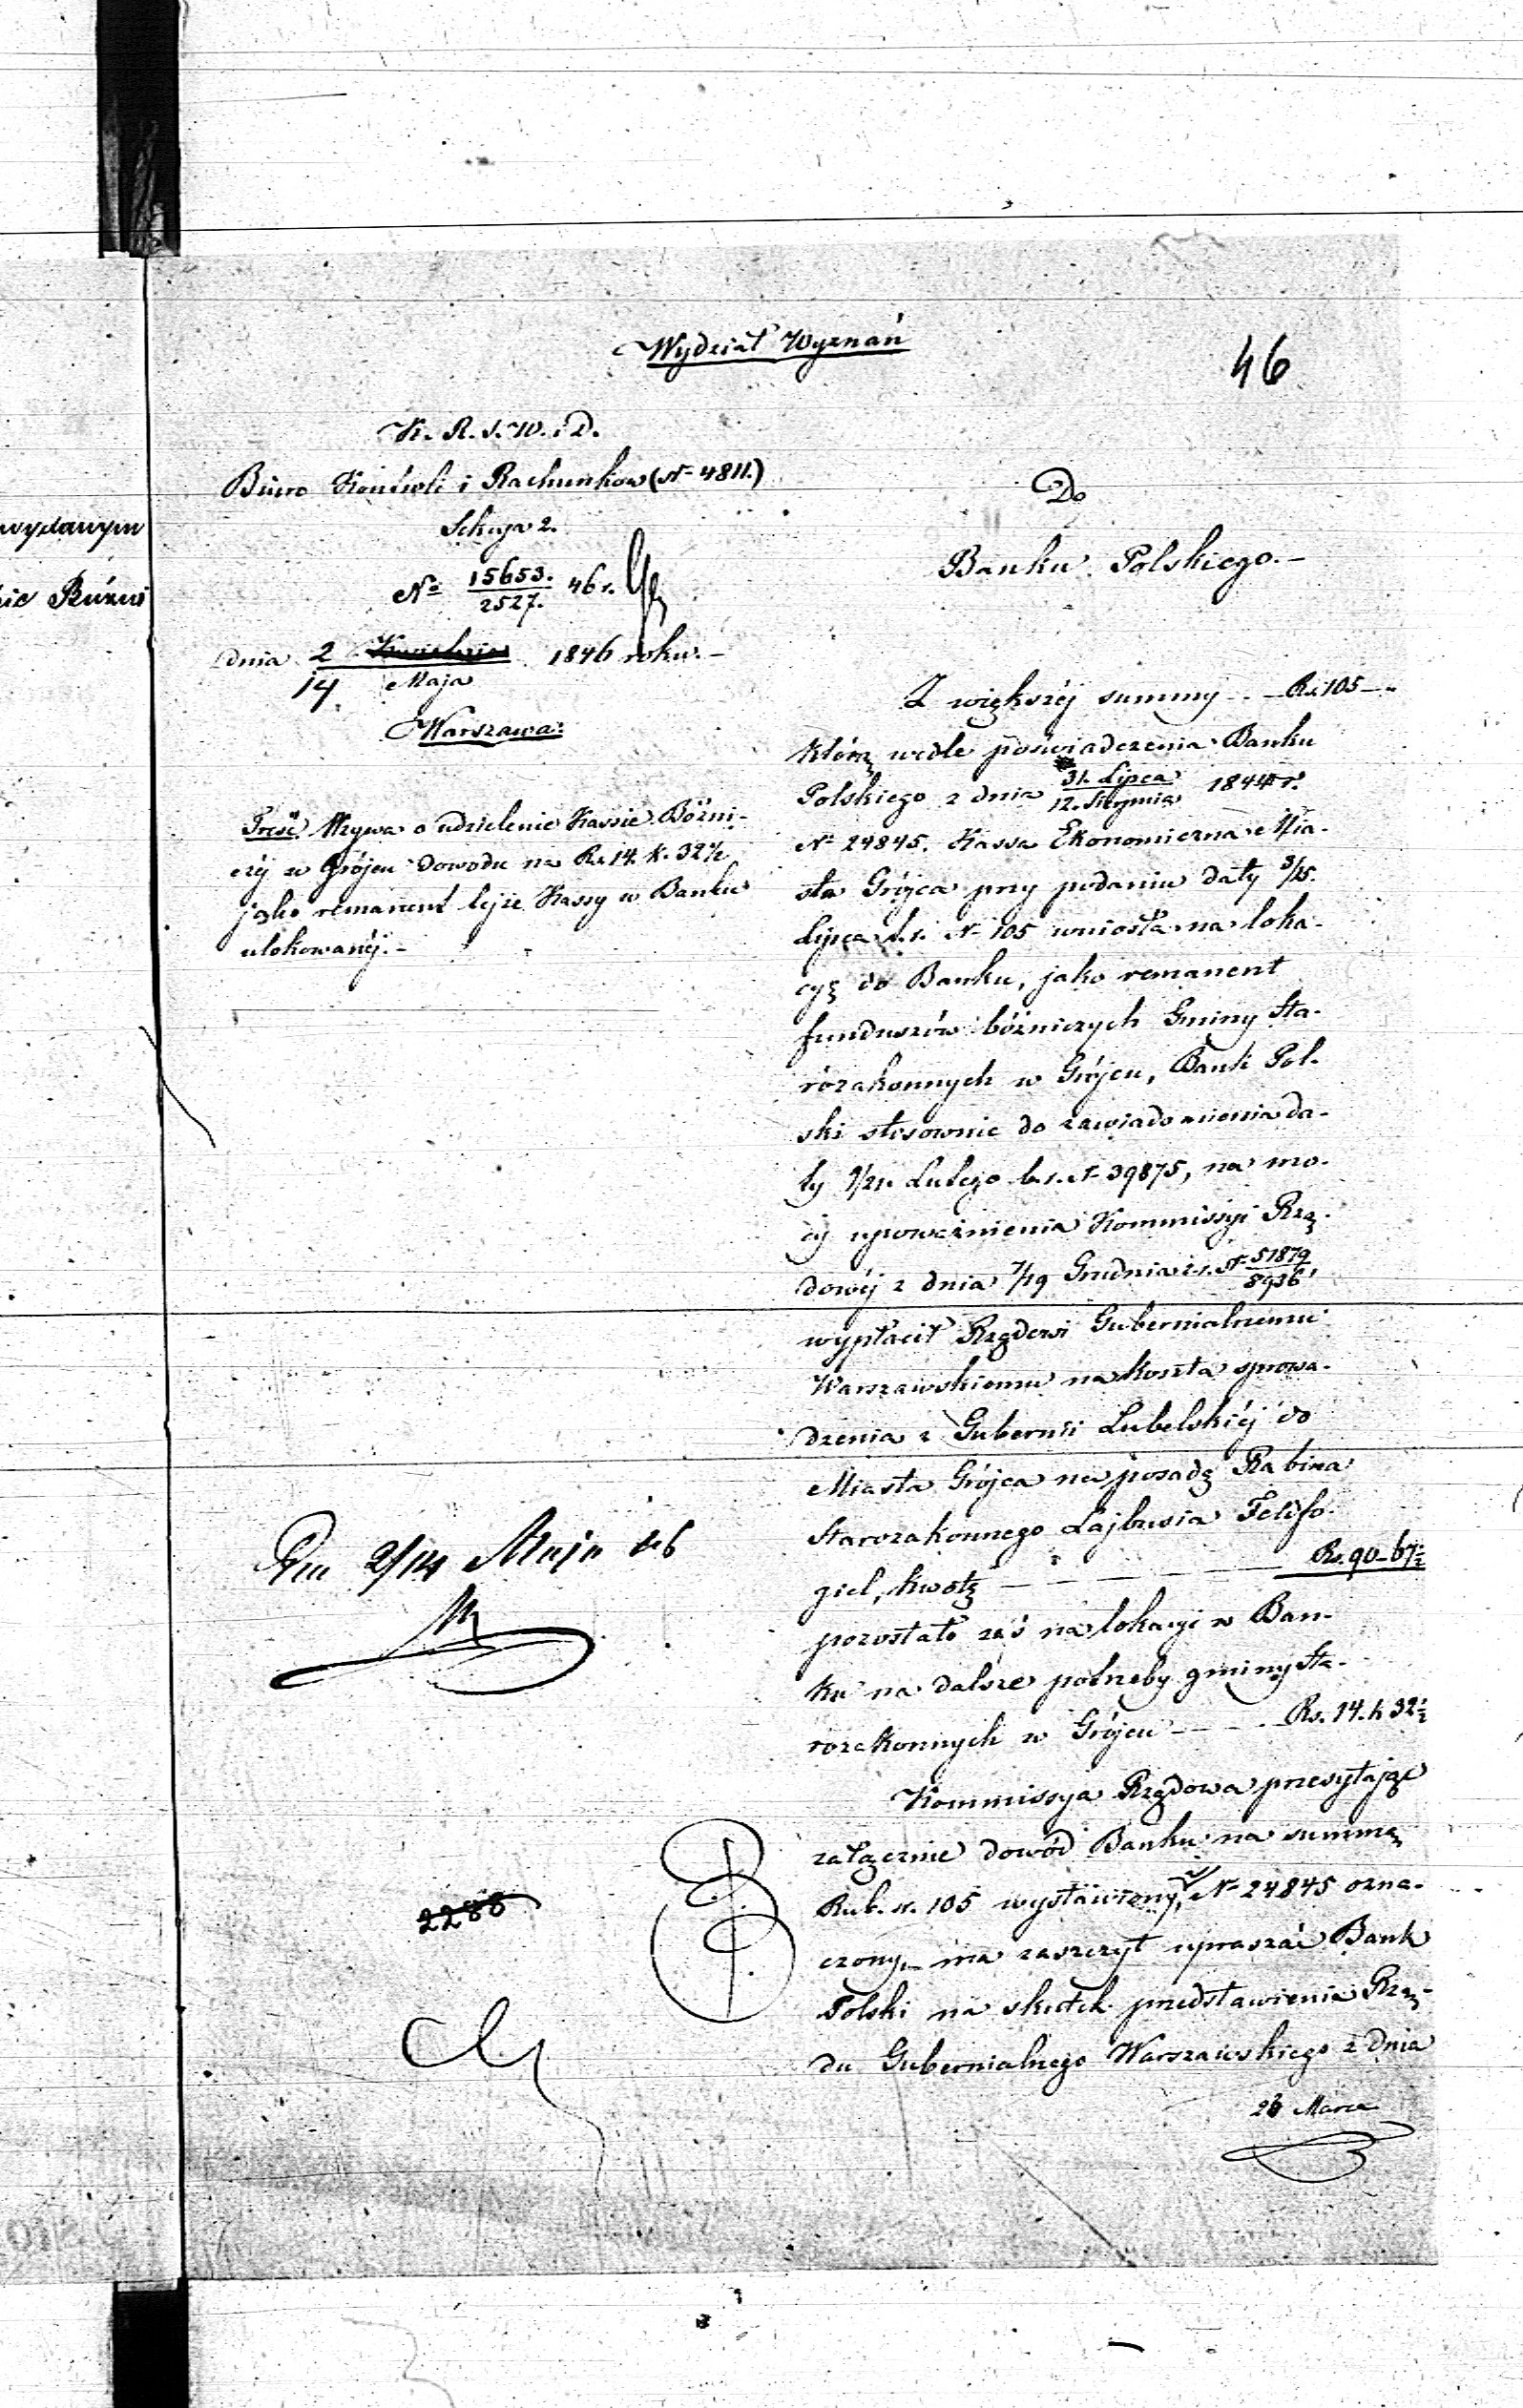 Wydział Wyznań
46
K. R. S. W. i D.
Biuro Kontroli i Rachunkow (N 4811.)
Sekcya 2.
No 15653./2527. 46 r.
dnia 2 Kwietnia / 14 Maja 1846 roku.-
Warszawa.
Treść Wzywa o udzielenie Kassie Bóżni-
czéj w Grójcu dowodu na Rs 14 k. 32 1/2
jako remanent tejże Kassy w Banku
ulokowanéj.-
Dnia 2/14 Maja 46
2288
wydanym
Do
Banku Polskiego.-
Z większéj summy - - Rs. 105 -
którą wedle poświadczenia Banku
Polskiego z dnia 31. Lipca / 12. Sierpnia 1844 r.
N 24845. Kassa Ekonomiczna Mia-
sta Grójca przy podaniu daty 3/15.
Lipca t.r. N 105 wniosła na loka-
cyę do Banku, jako remanent
funduszów bóżniczych Gminy Sta-
rozakonnych w Grójcu, Bank Pol-
ski stosownie do zawiadomienia da-
ty 9/21 Lutego b.r. N 39875, na mo-
cy upoważnienia Kommissyi Rzą-
dowéj z dnia 7/19 Grudnia z.r. N 51879/8936,
wypłacił Rządowi Gubernialnemu
Warszawskiemu na koszta sprowa-
dzenia z Gubernii Lubelskiéj do
Miasta Grójca na posadę Rabina
Starozakonnego Lajbusia
giel, kwotę - - - - Rs. 90 - 67 1/2
pozostało zaś na lokacyi w Ban-
ku na dalsze potrzeby gminy Sta-
rozakonnych w Grójcu - - - Rs. 14. k 32 1/2
Kommissya Rządowa przesyłając
załącznie dowód Banku na summę
Rub. sr. 105 wystawiony, N 24845 ozna-
czony, ma zaszczyt upraszać Bank
Polski na skutek przedstawienia Rzą-
du Gubernialnego Warszawskiego z dnia
26 Marca